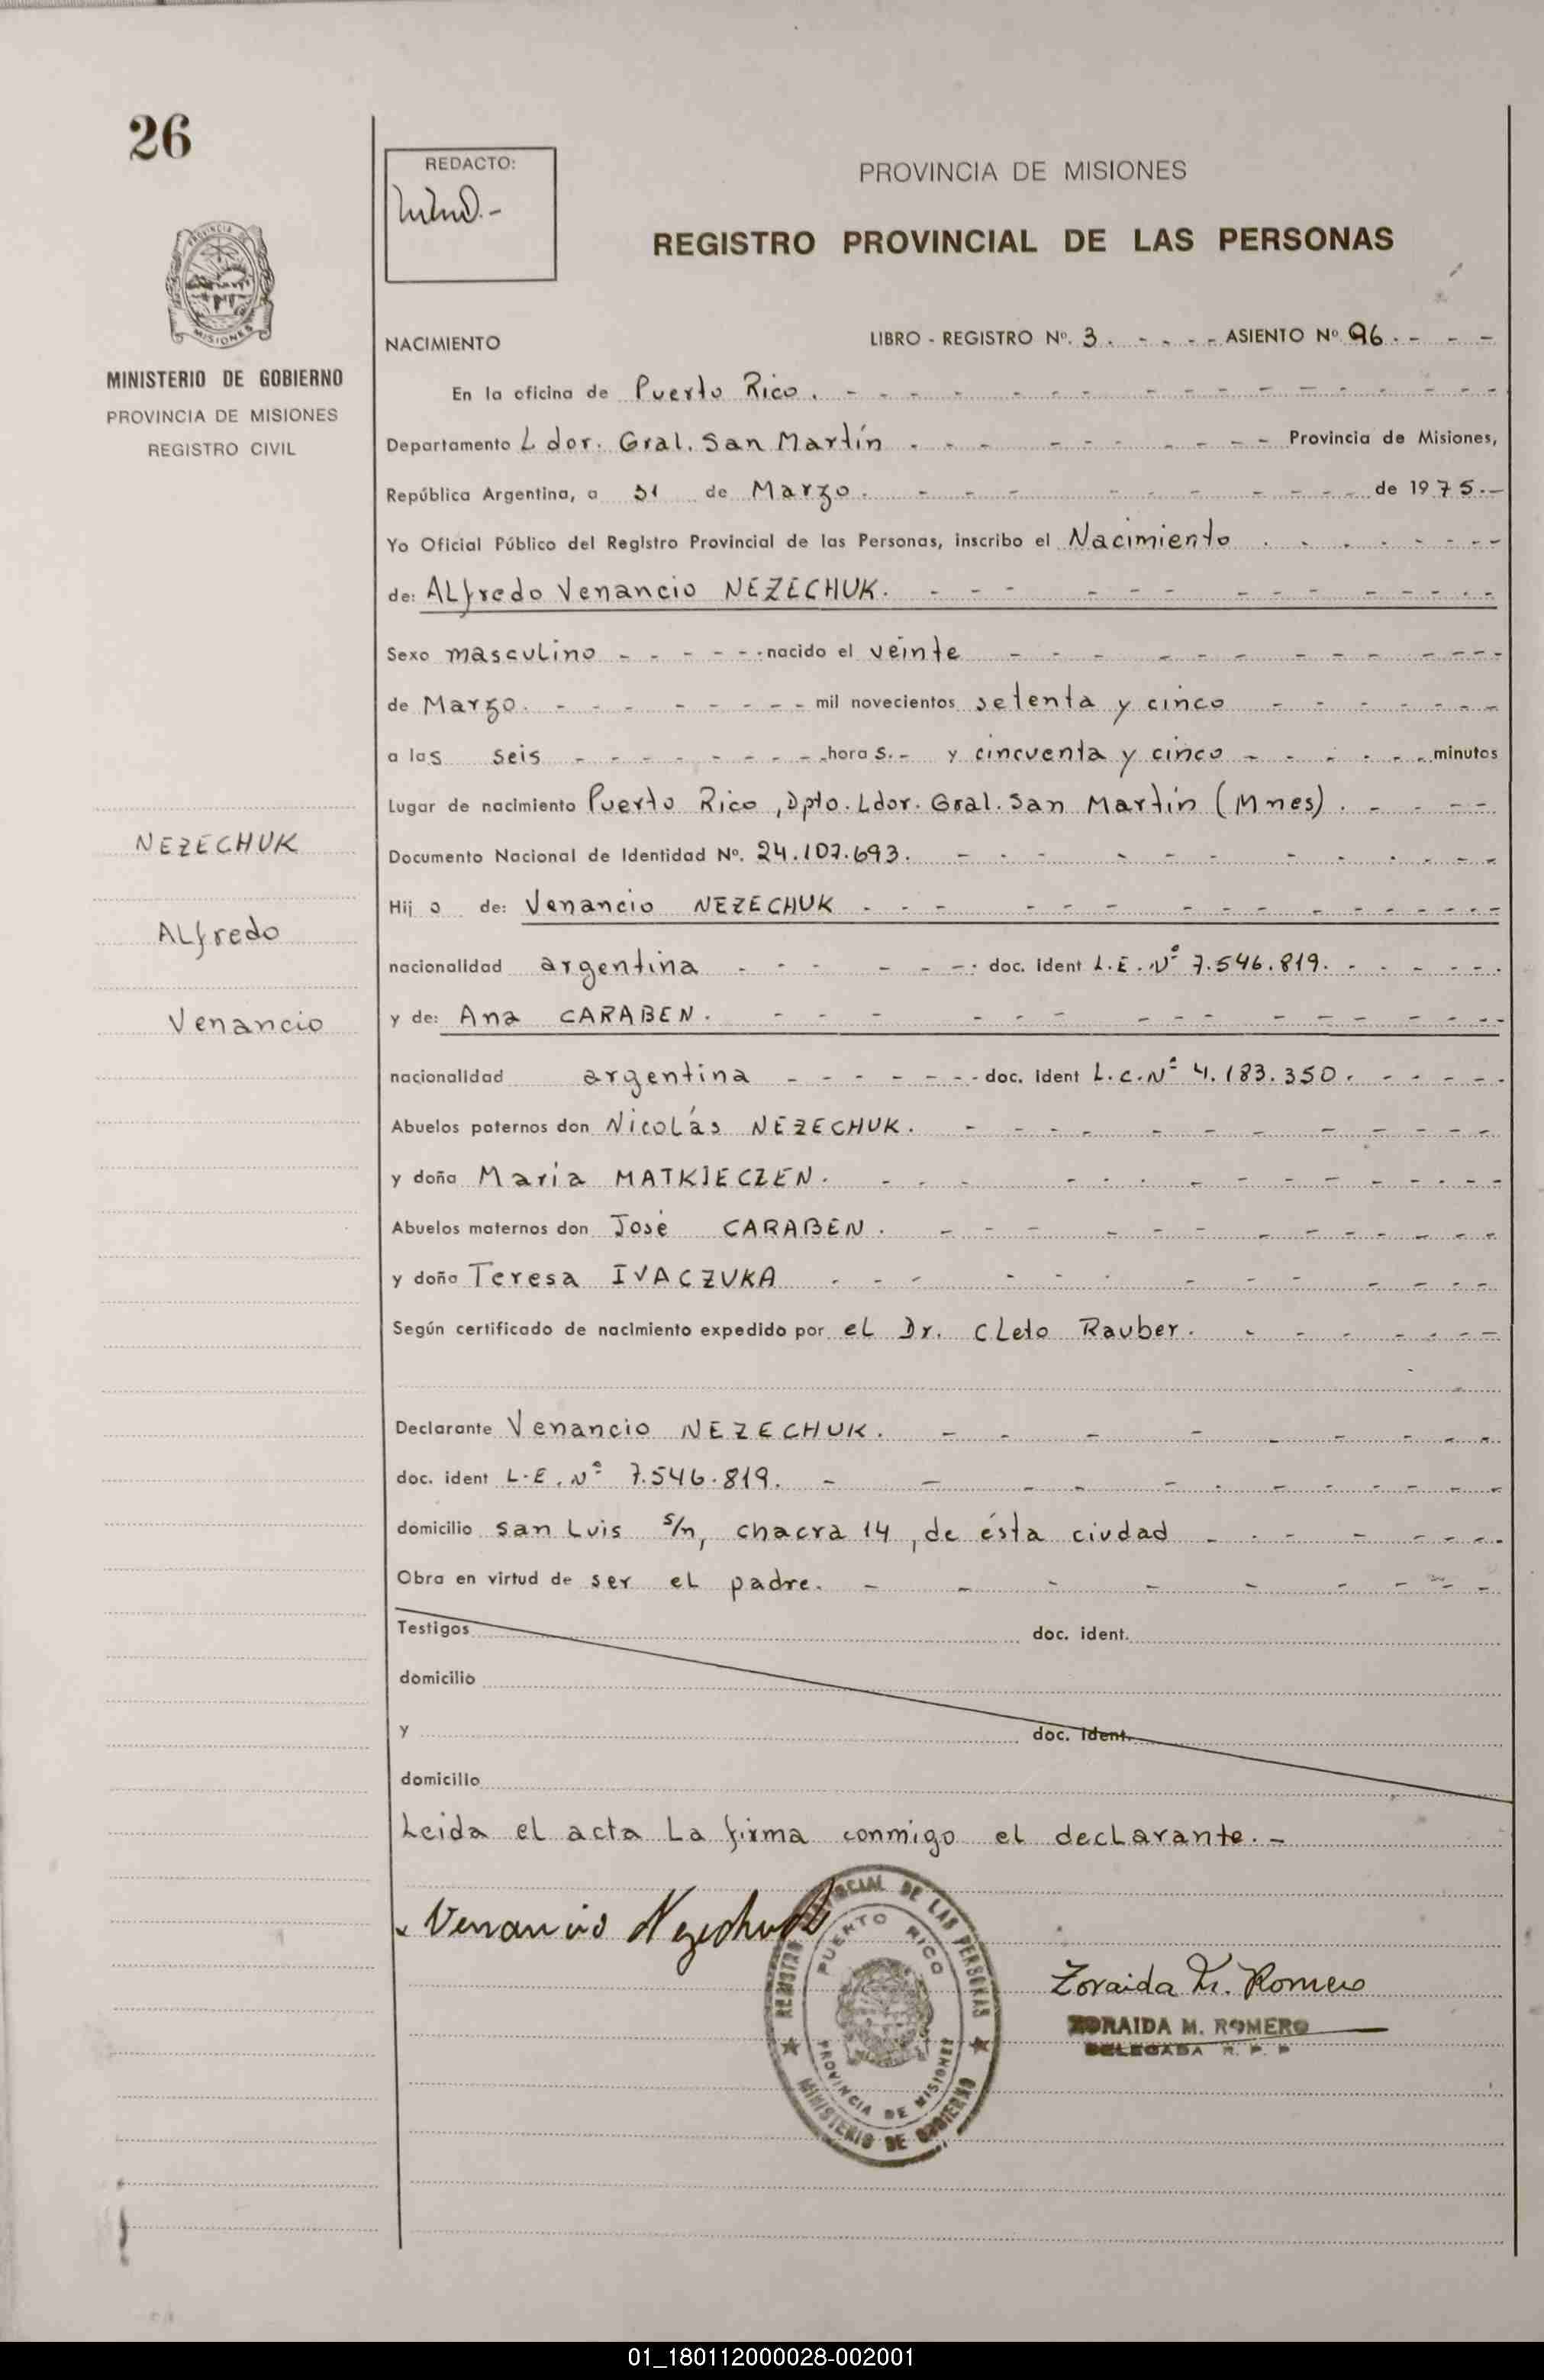 26
REDACTO:
PROVINCIA DE MISIONES
REGISTRO PROVINCIAL DE LAS PERSONAS
PROVINCIA DE MISIONES
MINISTERIO DE GOBIERNO
PROVINCIA DE MISIONES
REGISTRO CIVIL
NACIMIENTO LIBRO - REGISTRO Nº. 3. - - - - ASIENTO Nº 96. - - -
En la oficina de Puerto Rico.
Departamento Ldor. Gral. San Martín Provincia de Misiones,
República Argentina, a 31 de Marzo. de 1975.-
Yo Oficial Público del Registro Provincial de las Personas, inscribo el Nacimiento
de: ALfredo Venancio NEZECHUK.
Sexo mascuLino nacido el veinte
de Marzo. mil novecientos setenta y cinco
a las seis horas.- y cincuenta y cinco minutos
Lugar de nacimiento Puerto Rico, Dpto. Ldor. Gral. San Martín (Mnes).
Documento Nacional de Identidad Nº. 24.107.693.
Hijo de: Venancio NEZECHUK
nacionalidad argentina doc. ident L.E. Nº 7.546.819.
y de: Ana CARABEN.
nacionalidad argentina doc. ident L.C. Nº 4.183.350.
Abuelos paternos don NicoLás NEZECHUK.
y doña María MATKIECZEN.
Abuelos maternos don José CARABEN.
y doña Teresa IVACZUKA
Según certificado de nacimiento expedido por eL Dr. CLeto Rauber.
Declarante Venancio NEZECHUK.
doc. ident L.E. Nº 7.546.819.
domicilio San Luis s/n, chacra 14, de ésta ciudad
Obra en virtud de ser eL padre.
Testigos doc. ident.
domicilio
y doc. ident.
domicilio
Leida el acta La firma conmigo el decLarante.-
NEZECHUK
ALfredo
Venancio
Venancio Nezechuk
REGISTRO PROVINCIAL DE LAS PERSONAS
PUERTO RICO
PROVINCIA DE MISIONES
MINISTERIO DE GOBIERNO
Zoraida M. Romero
ZORAIDA M. ROMERO
DELEGADA R. P. P
01_180112000028-002001